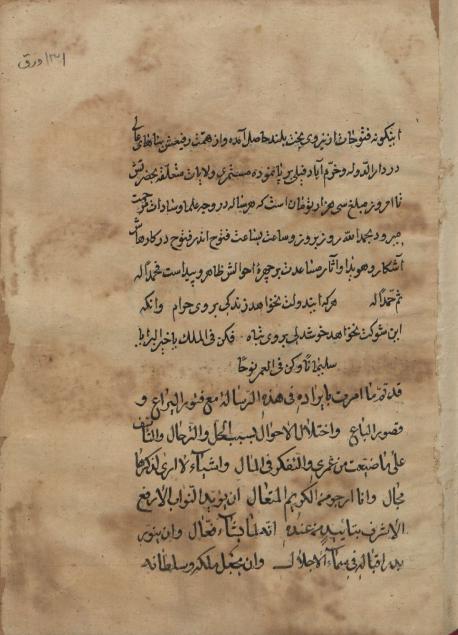 ۱۳۱ ورق
اینگونه فتوحات از نیروی بخت بلند حاصل آمده و از همت رفیعش بناهای عالی
در دار الدوله و خرم آباد فیلی بر پا نموده مستمری ولایات متعلقه بحضرتش
تا امروز مبلغ سی هزار تومان است که هر ساله در وجه علما و سادات مرحمت
میرود بحمد الله روز بروز و ساعت بساعت فتوح اندر فتوح در کارهاش
آشکار و هویدا و آثار مساعدت بر چهرهٔ احوالش ظاهر و پیداست فحمداً له
ثم حمداً له هر که ایندولت نخواهد زندگی بروی حرام وانکه
این شوکت نخواهد خوشدلی بروی تباه فکن فی الملک یا خیر البرایا
سلیماناً وکن فی العمر نوحا
قد تم ما امرت بایراده فی هذه الرسالة مع فتور الیراع و
قصور الباع واختلال الاحوال بسبب الحل والترحال والتاسف
علی ما ضیعت من عمری والتفکر فی المال واشیاء لا اری لذکرها
مجال وانا ارجو من الکریم المتعال ان یوید النواب الارفع
الاشرف بتایید من عنده انه لما یشاء فعال وان ینور
بدر اقباله فی سماء الاجلال وان یجعل ملکه وسلطانه